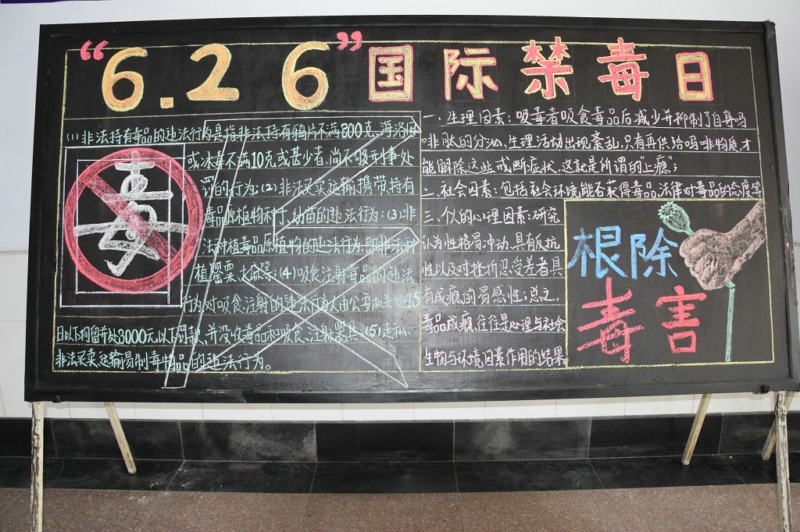 “6.26”国际禁毒日
(1)非法持有毒品的违法行为是指非法持有鸦片不满200克,海洛因
或冰毒不满10克或甚少者,尚不够刑事处
罚的行为:(2)非法买卖运输携带持有
毒品原植物种子、幼苗的违法行为:(3)非
法种植毒品原植物的违法行为,即非法种
植罂粟大麻等:(4)吸食注射毒品的违法
行为对吸食注射的违法行为人由公安机关处15
日以下拘留并处3000元以下罚款,并没收毒品和吸食、注射器具(5)走私
非法买卖运输易制毒中品的违法行为。
毒
一、生理因素:吸毒者吸食毒品后减少并抑制了自身吗
啡肽的分泌,生理活动出现紊乱,只有再供给吗啡物质,才
能解除这些戒断症状,这就是所谓的“上瘾”;
二、社会因素:包括社会环境能否获得毒品,法律对毒品的态度等
三、个人的心理因素:研究
认为性格易冲动,具有反抗
性以及对挫折忍受差者具
有成瘾的易感性;总之,
毒品成瘾往往是心理与社会
生物与环境因素作用的结果
根除
毒害